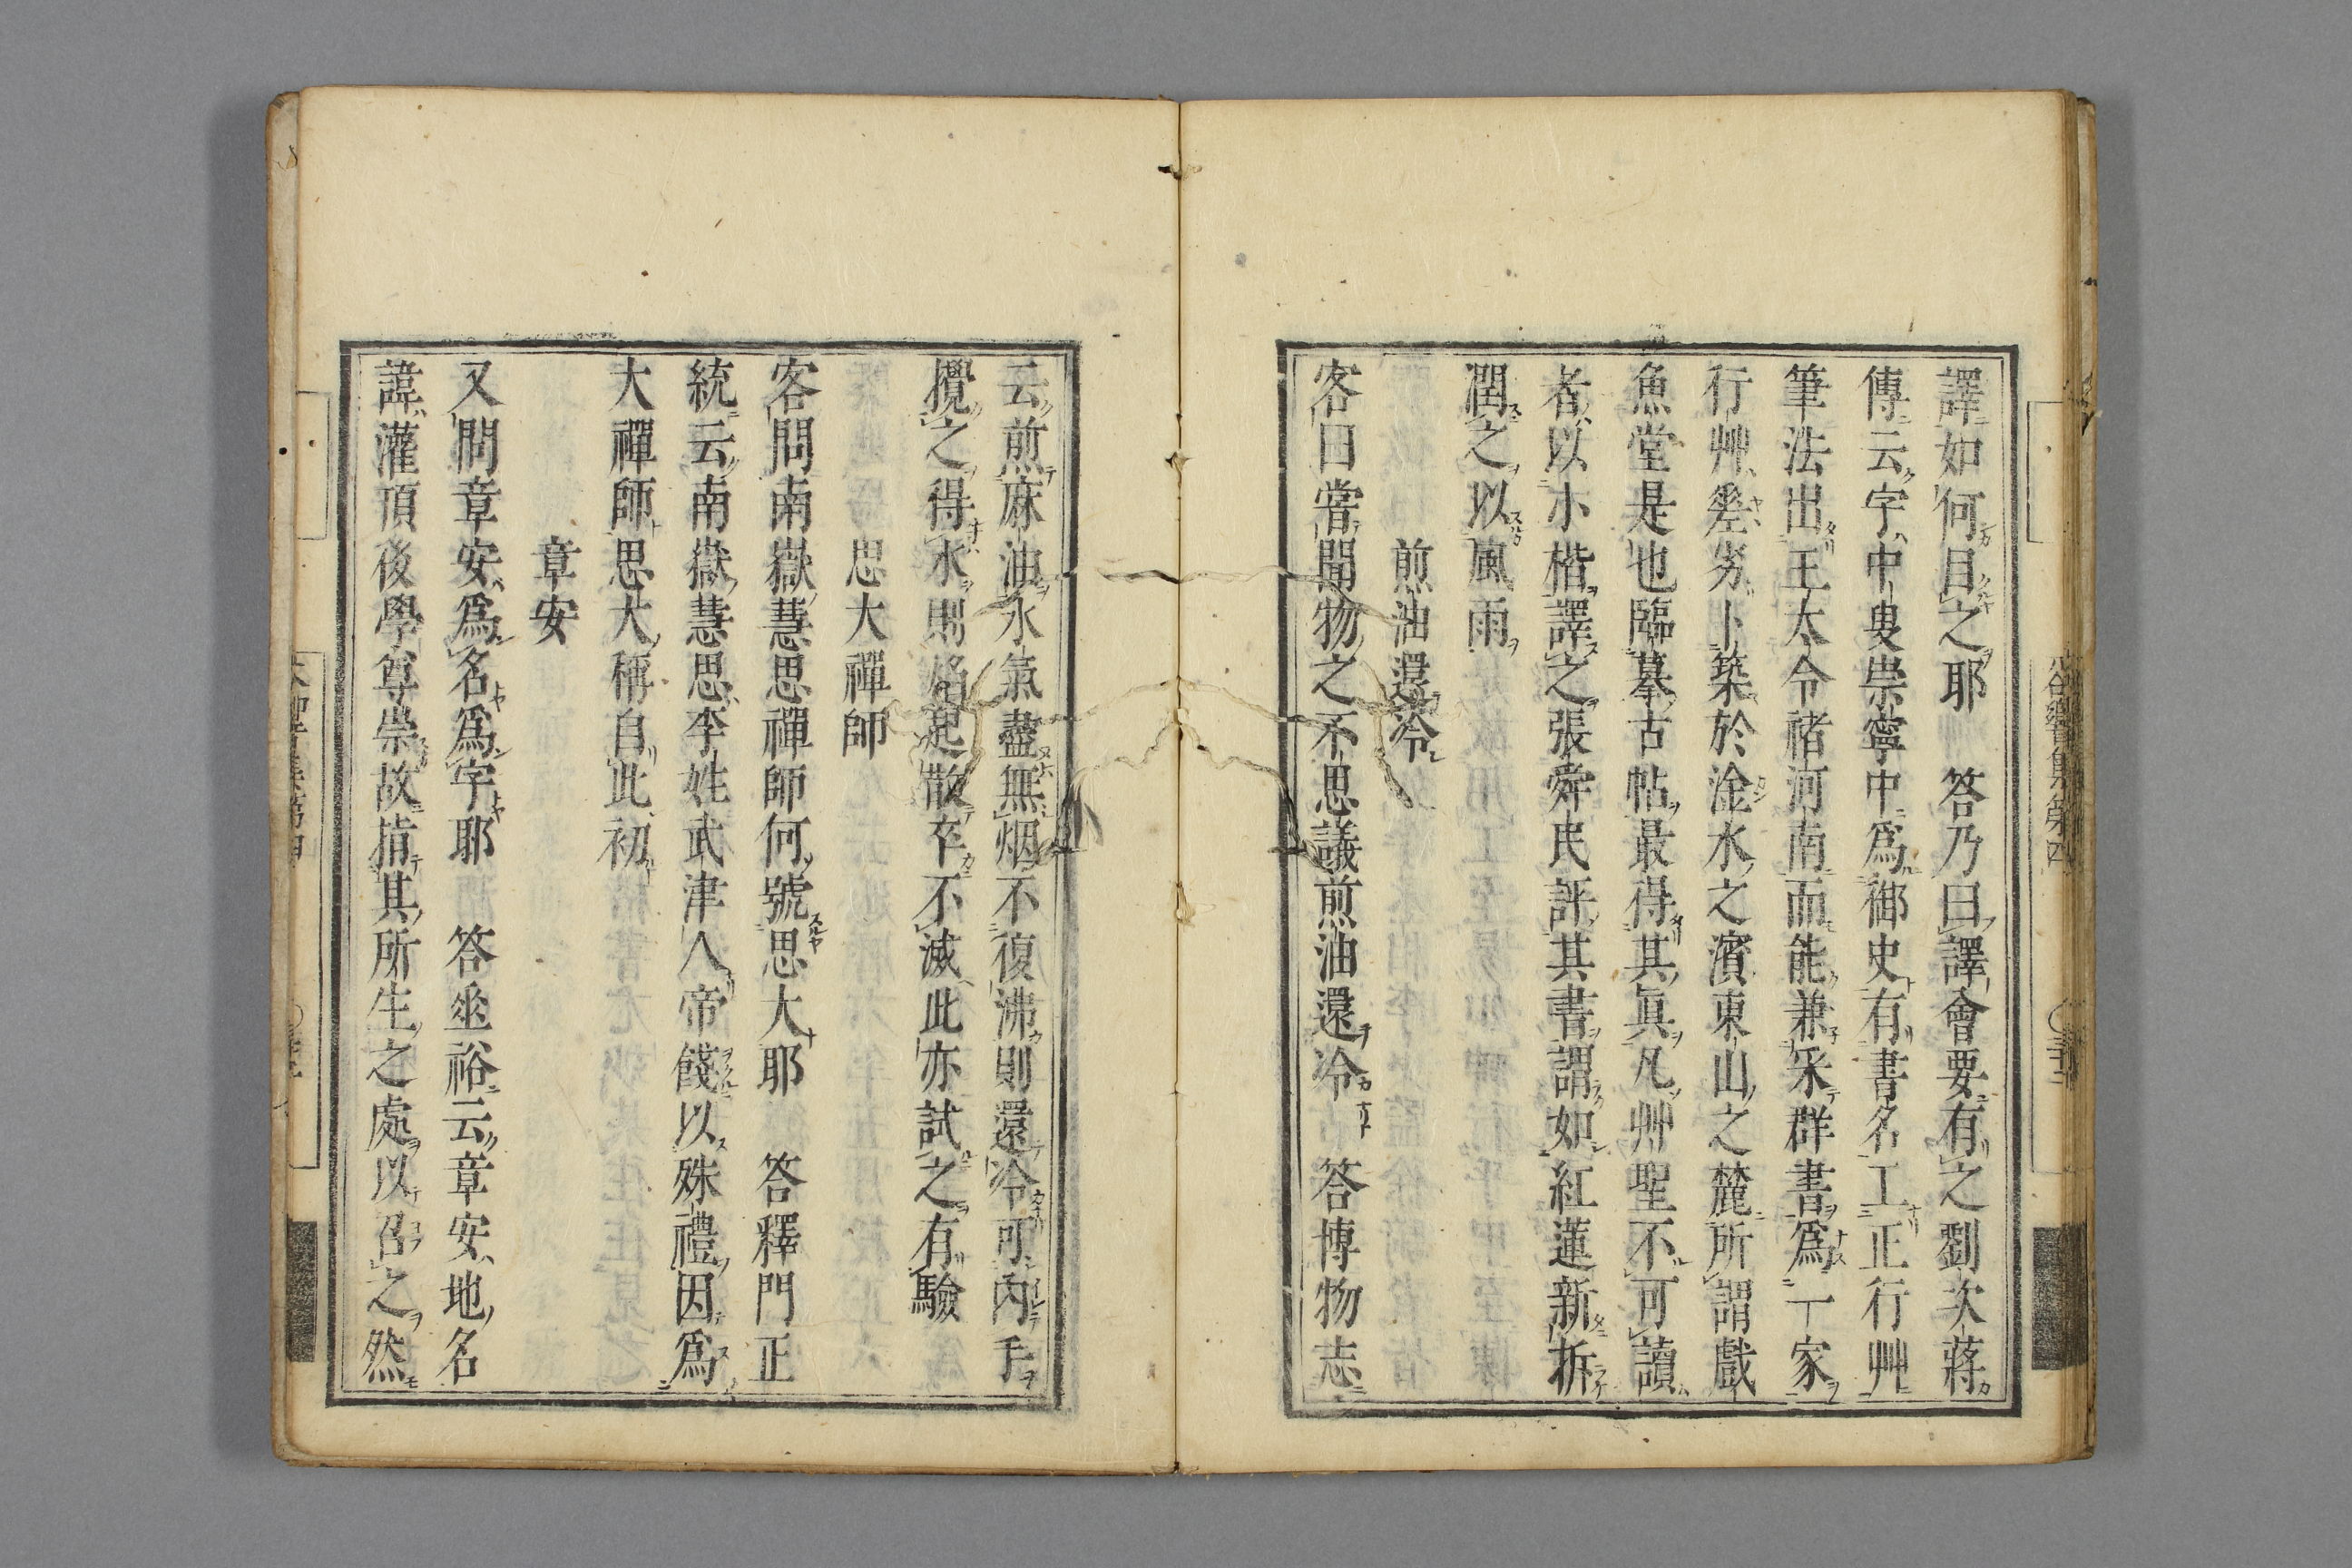 譯如何目之耶　答乃曰譯會要有之劉次蔣
傳云字中叟崇寧中爲御史有書名工正行艸
筆法出王大令褚河南而能兼采群書爲一家
行艸差劣卜築於淦水之濱東山之麓所謂戲
魚堂是也臨摹古帖最得其眞凡艸聖不可讀
者以小楷譯之張舜民評其書謂如紅蓮新折
潤之以風雨
煎油還冷
客曰嘗聞物之不思議煎油還冷　答博物志
云煎麻油水氣盡無烟不復沸則還冷可內手
攪之得水則焰起散卒不滅此亦試之有驗
思大禪師
客問南嶽慧思禪師何號思大耶　答釋門正
統云南嶽慧思李姓武津人帝餞以殊禮因爲
大禪師思大稱自此初
章安
又問章安爲名爲字耶　答垂裕云章安地名
諱灌頂後學尊崇故指其所生之處以召之然